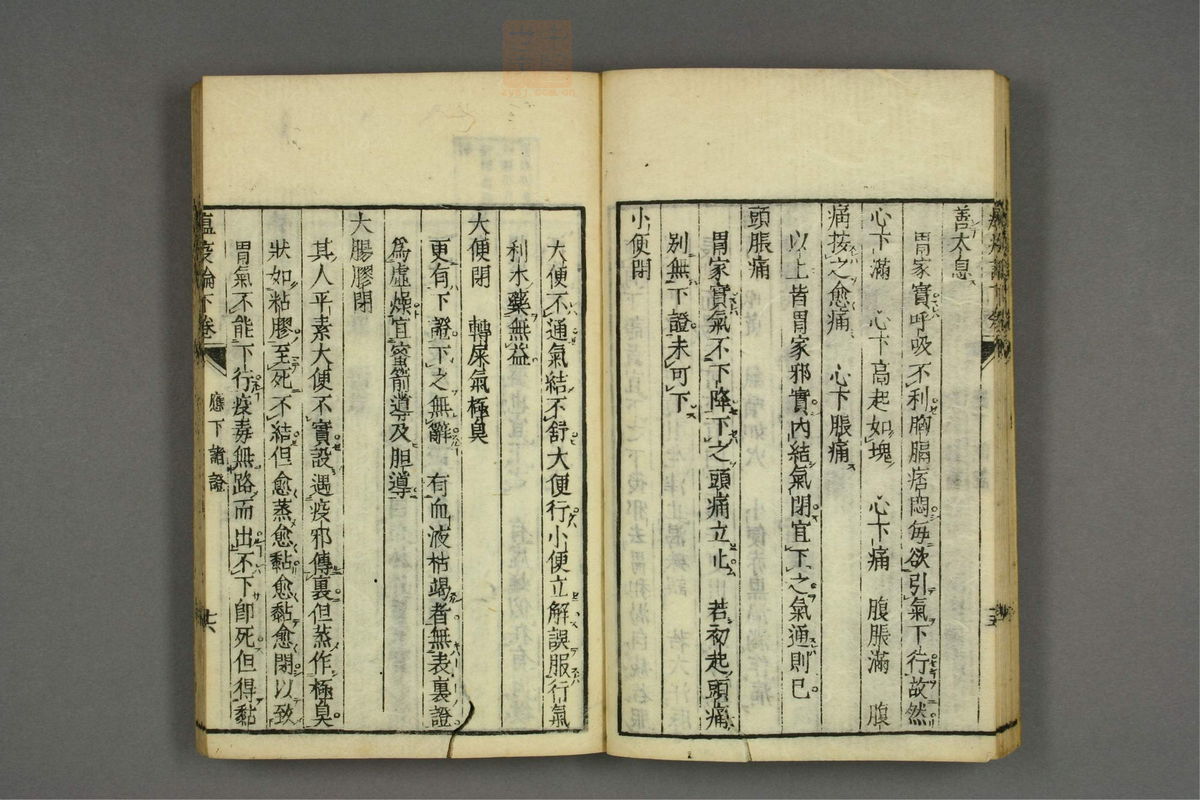 善太息
胃家實呼吸不利胸膈痞悶每欲引氣下行故然
心下滿 心下高起如塊 心下痛 腹脹滿 腹
痛按之愈痛 心下脹痛
以上皆胃家邪實內結氣閉宜下之氣通則已
頭脹痛
胃家實氣不下降下之頭痛立止 若初起頭痛
別無下證未可下
小便閉
大便不通氣結不舒大便行小便立解誤服行氣
利水藥無益
大便閉 轉屎氣極臭
更有下證下之無辭 有血液枯竭者無表裏證
爲虛燥宜蜜箭導及胆導
大腸膠閉
其人平素大便不實設遇疫邪傳裏但蒸作極臭
狀如粘膠至死不結但愈蒸愈黏愈黏愈閉以致
胃氣不能下行疫毒無路而出不下卽死但得黏
瘟疫論下卷
應下諸證
十六